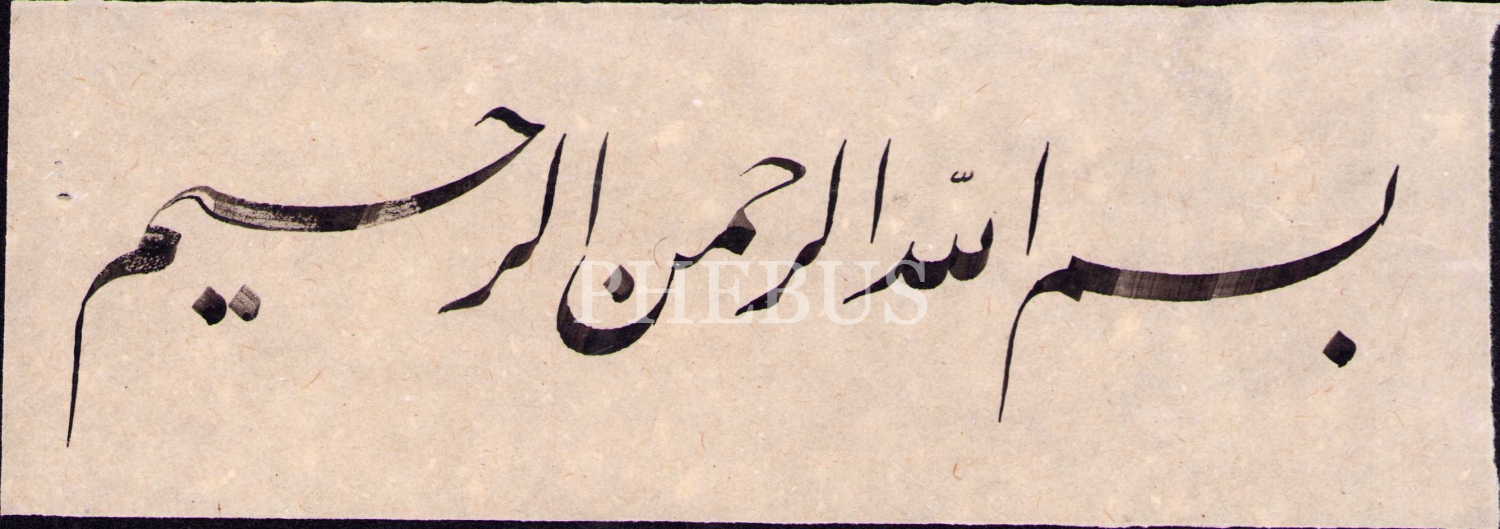 بسم اللّه الرحمن الرحيم
PHEBUS